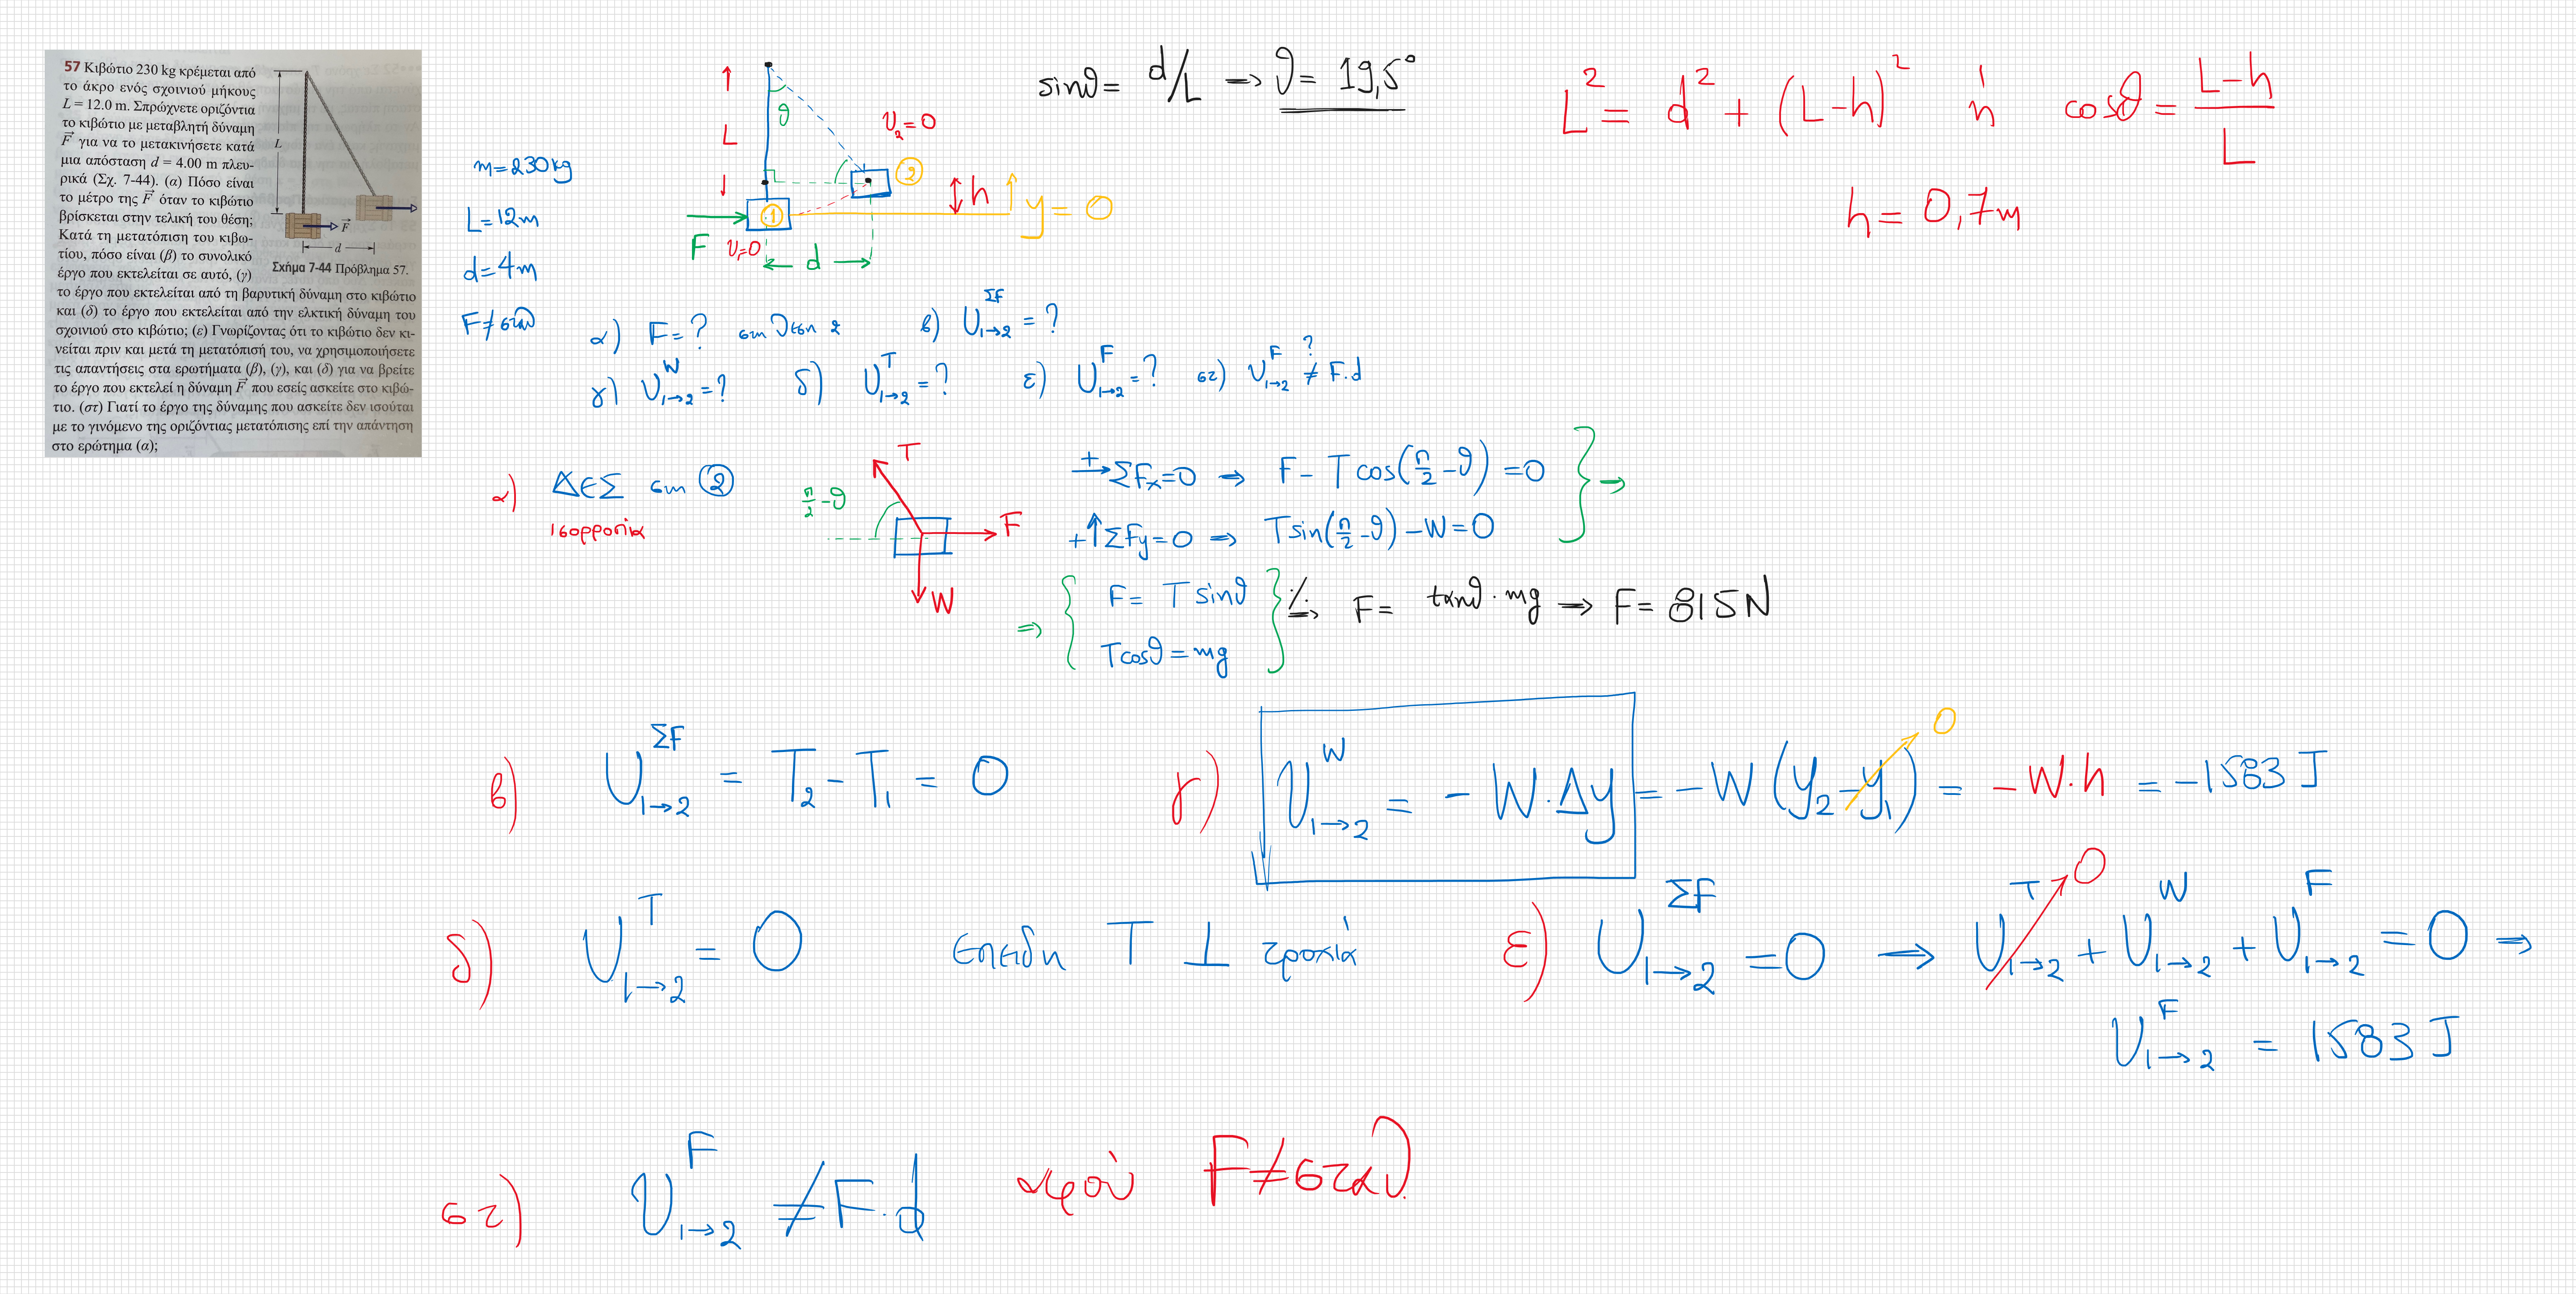 57 Κιβώτιο 230 kg κρέμεται από
το άκρο ενός σχοινιού μήκους
L = 12.0 m. Σπρώχνετε οριζόντια
το κιβώτιο με μεταβλητή δύναμη
F⃗ για να το μετακινήσετε κατά
μια απόσταση d = 4.00 m πλευ-
ρικά (Σχ. 7-44). (α) Πόσο είναι
το μέτρο της F⃗ όταν το κιβώτιο
βρίσκεται στην τελική του θέση;
Κατά τη μετατόπιση του κιβω-
τίου, πόσο είναι (β) το συνολικό
έργο που εκτελείται σε αυτό, (γ)
το έργο που εκτελείται από τη βαρυτική δύναμη στο κιβώτιο
και (δ) το έργο που εκτελείται από την ελκτική δύναμη του
σχοινιού στο κιβώτιο; (ε) Γνωρίζοντας ότι το κιβώτιο δεν κι-
νείται πριν και μετά τη μετατόπισή του, να χρησιμοποιήσετε
τις απαντήσεις στα ερωτήματα (β), (γ), και (δ) για να βρείτε
το έργο που εκτελεί η δύναμη F⃗ που εσείς ασκείτε στο κιβώ-
τιο. (στ) Γιατί το έργο της δύναμης που ασκείτε δεν ισούται
με το γινόμενο της οριζόντιας μετατόπισης επί την απάντηση
στο ερώτημα (α);
L
F⃗
d
Σχήμα 7-44 Πρόβλημα 57.
m=230kg
L=12m
d=4m
F≠σταθ
L
θ
υ₂=0
2
1
h
y=0
F
υ₁=0
d
sinθ = d/L → θ = 19,5°
L² = d² + (L-h)² ή cosθ = (L-h)/L
h = 0,7m
α) F=? στη θέση 2 β) U₁→₂^ΣF = ?
γ) U₁→₂^W = ? δ) U₁→₂^T = ? ε) U₁→₂^F = ? στ) U₁→₂^F ≠? F.d
α) ΔΕΣ στη 2
ισορροπία
T
π/2-θ
F
W
+→ ΣFx=0 ⇒ F - Tcos(π/2-θ) = 0 } ⇒
+↑ ΣFy=0 ⇒ Tsin(π/2-θ) - W = 0
⇒ { F = Tsinθ } ⁒⇒ F = tanθ·mg ⇒ F = 815N
Tcosθ = mg
β) U₁→₂^ΣF = T₂ - T₁ = 0
γ) U₁→₂^W = -W·Δy = -W(y₂-y₁) = -W·h = -1583 J
0
δ) U₁→₂^T = 0 επειδή T ⊥ τροχιά
ε) U₁→₂^ΣF = 0 → U₁→₂^T + U₁→₂^W + U₁→₂^F = 0 ⇒
0
U₁→₂^F = 1583 J
στ) U₁→₂^F ≠ F.d αφού F≠σταθ.